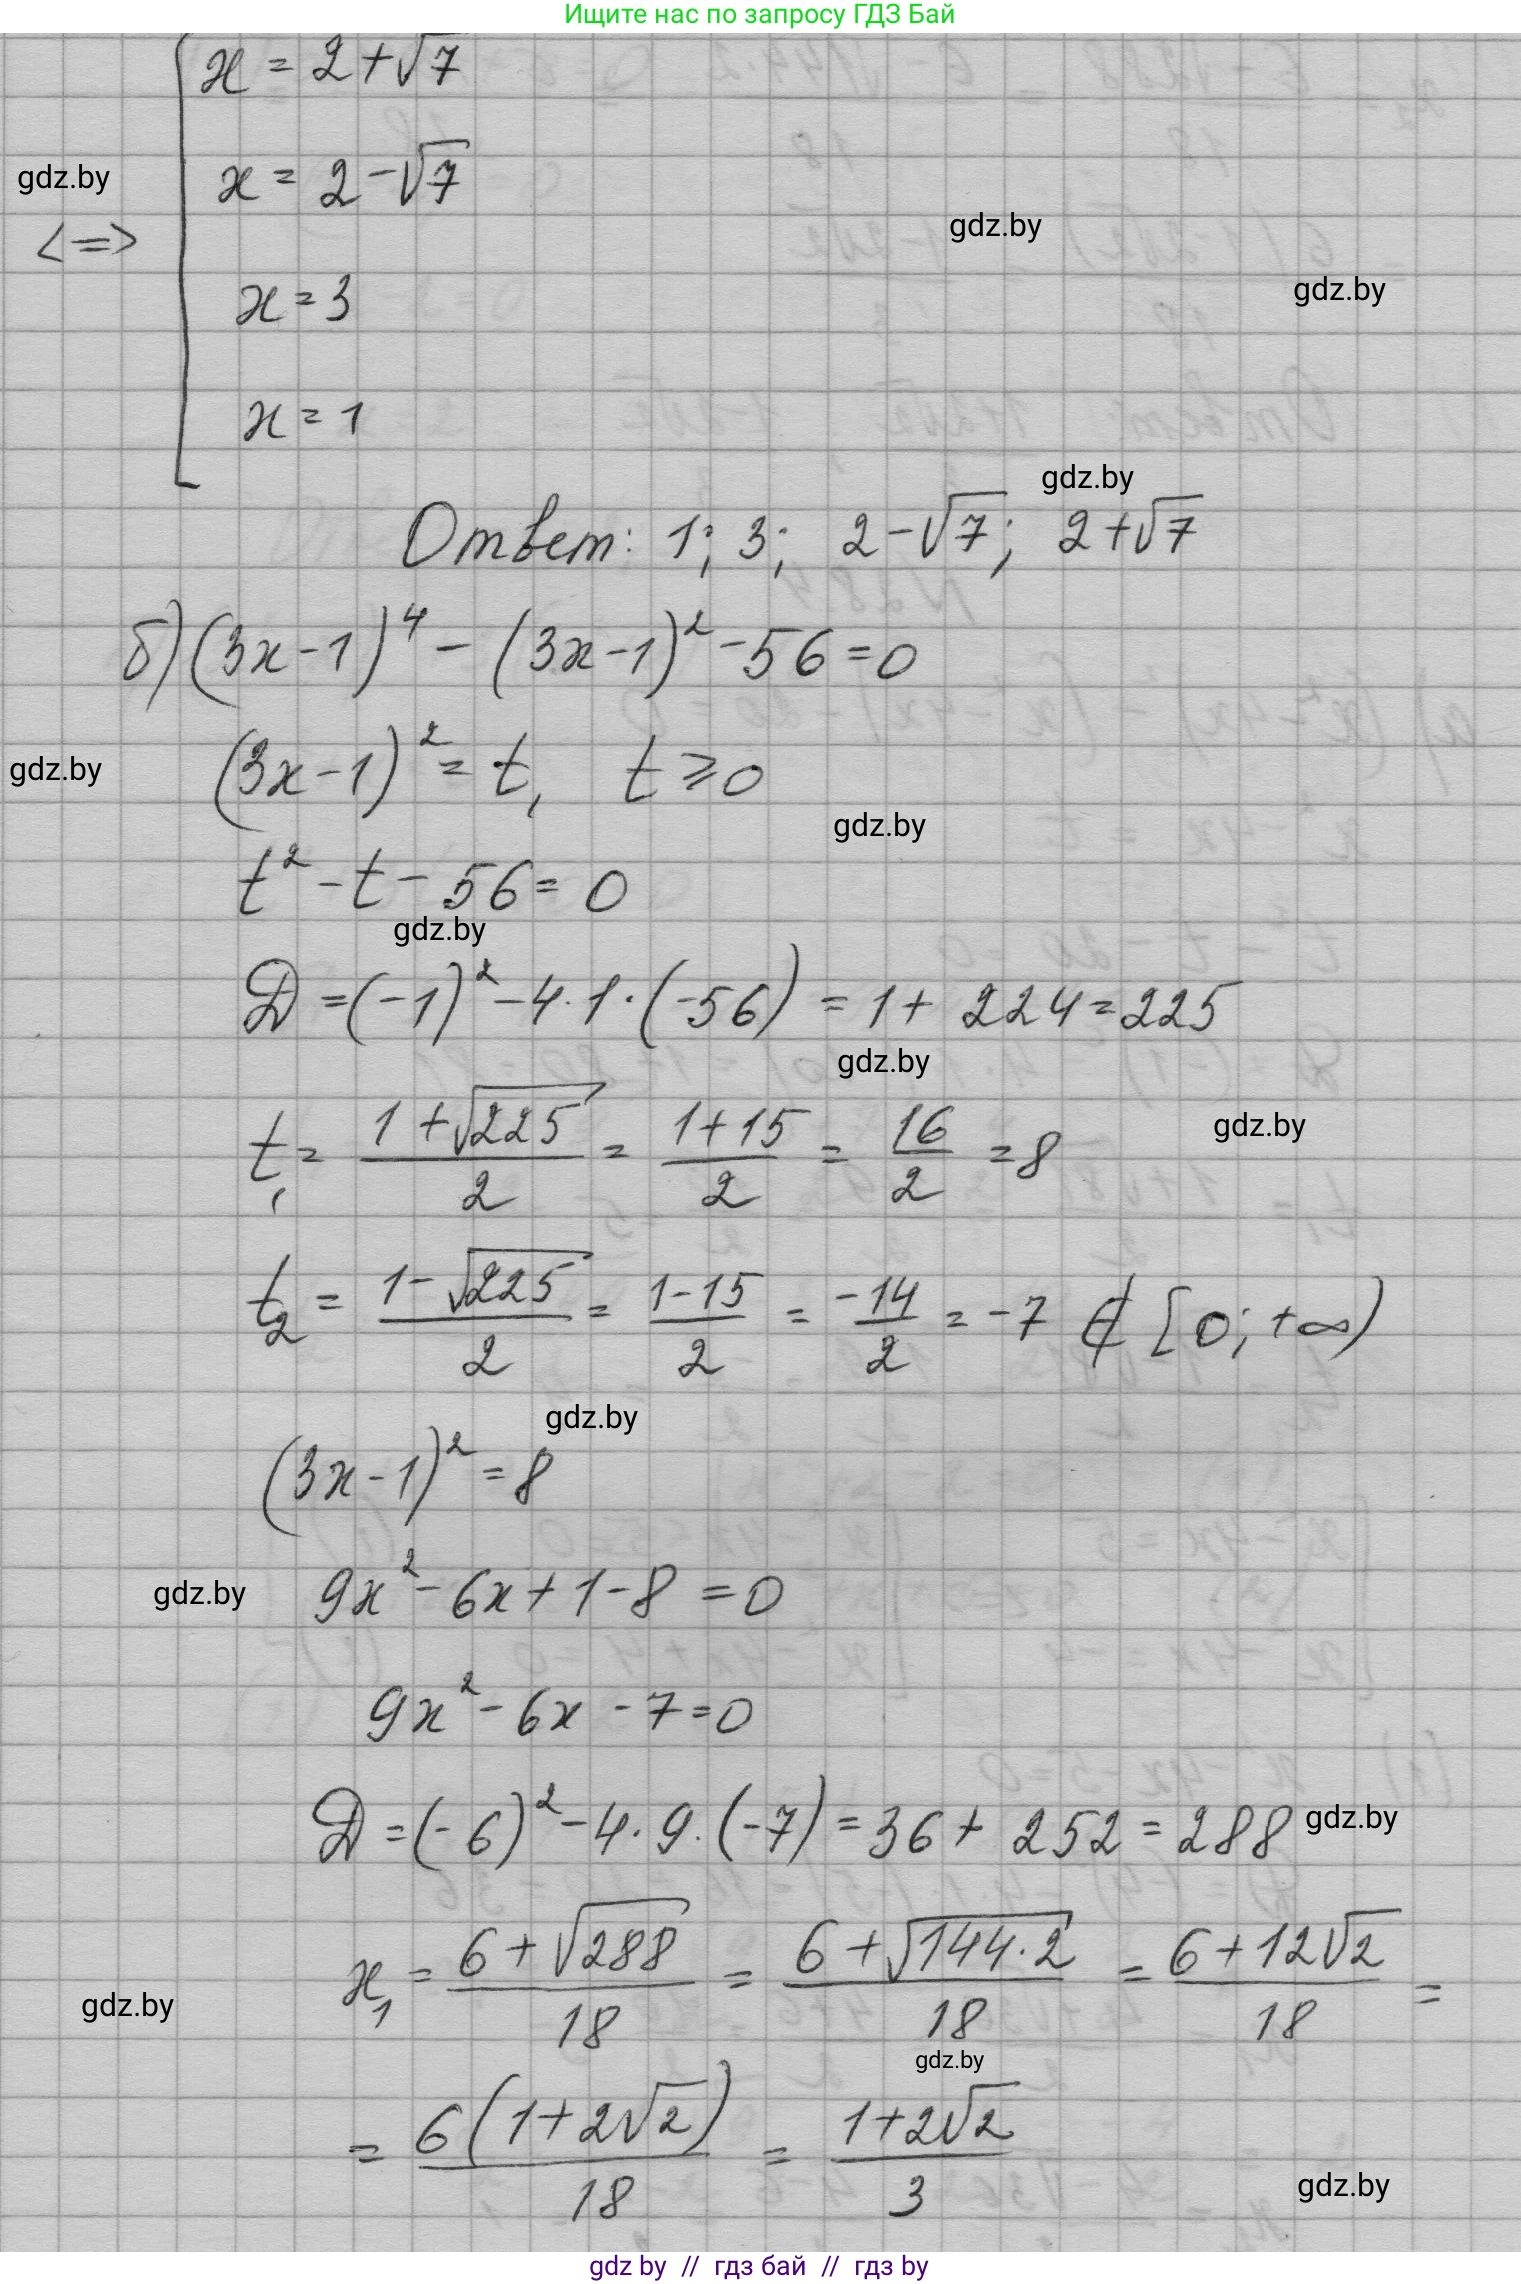 Ищите нас по запросу ГДЗ Бай
x = 2+√7
gdz.by
x = 2-√7
<=>
gdz.by
gdz.by
x = 3
x = 1
gdz.by
Ответ: 1; 3; 2-√7; 2+√7
б) (3x-1)⁴ - (3x-1)² - 56 = 0
gdz.by
(3x-1)² = t, t ≥ 0
gdz.by
t² - t - 56 = 0
gdz.by
D = (-1)² - 4·1·(-56) = 1 + 224 = 225
gdz.by
gdz.by
t₁ = (1+√225)/2 = (1+15)/2 = 16/2 = 8
t₂ = (1-√225)/2 = (1-15)/2 = -14/2 = -7 ∉ [0; +∞)
gdz.by
(3x-1)² = 8
gdz.by
9x² - 6x + 1 - 8 = 0
9x² - 6x - 7 = 0
D = (-6)² - 4·9·(-7) = 36 + 252 = 288
gdz.by
x₁ = (6+√288)/18 = (6+√144·2)/18 = (6+12√2)/18 =
gdz.by
gdz.by
= 6(1+2√2)/18 = (1+2√2)/3
gdz.by
gdz by // гдз бай // гдз by